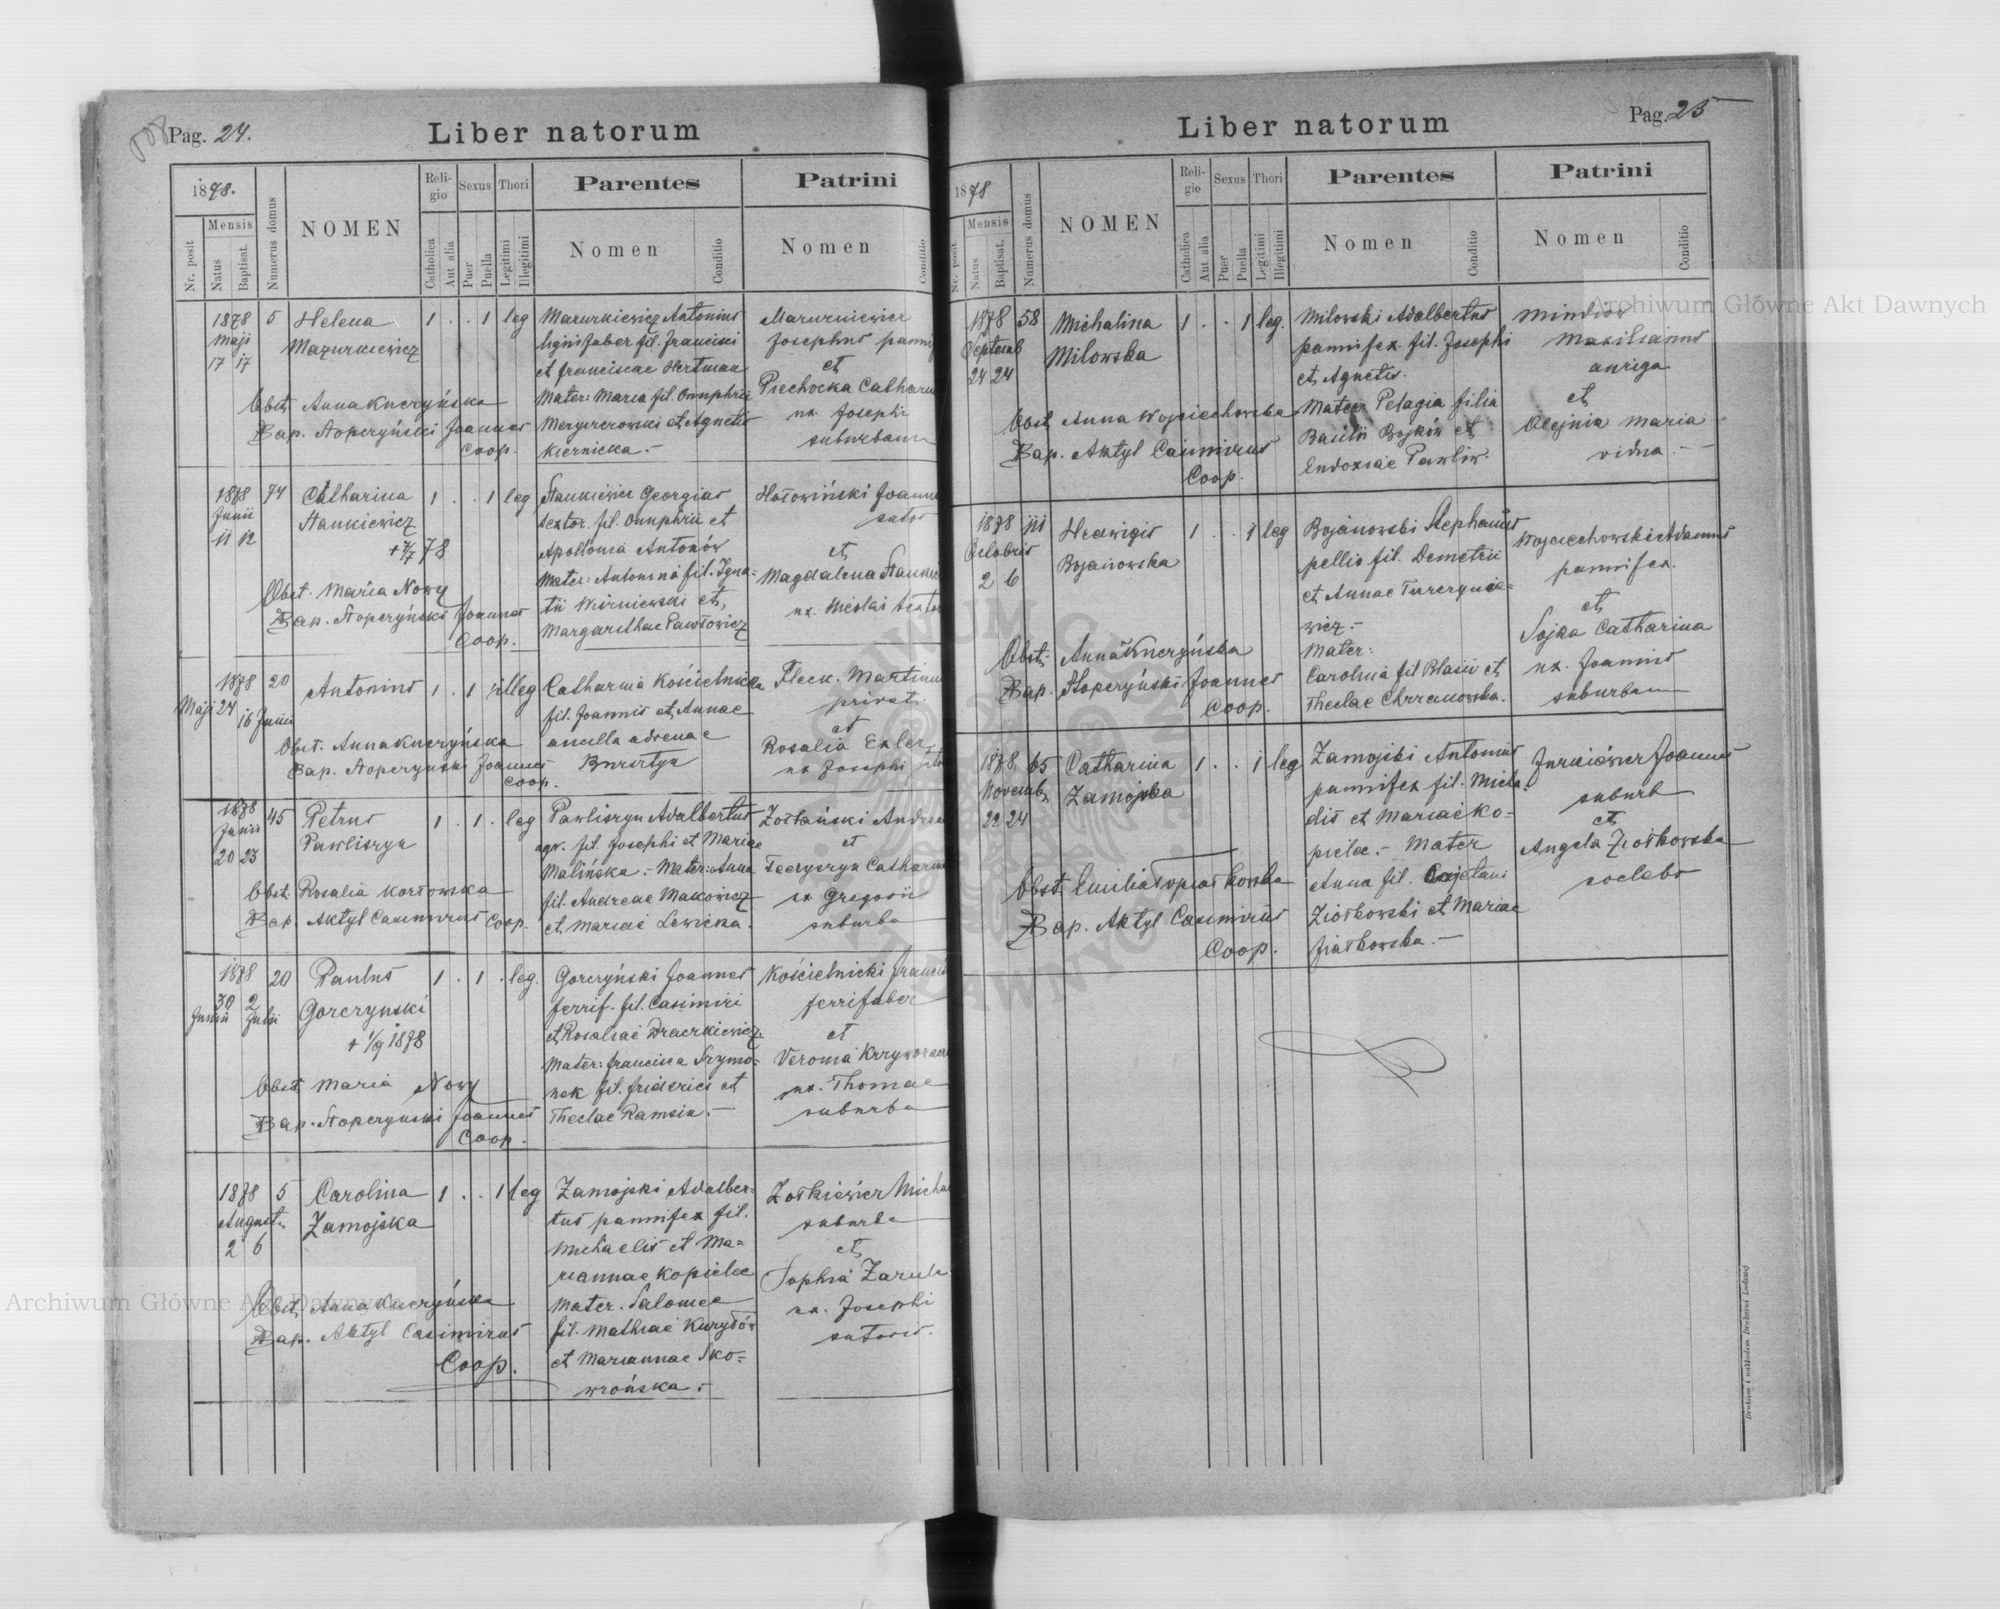 Pag. 24.
Liber natorum
1878.
Nr. posit
Mensis
Natus
Baptisat.
Numerus domus
NOMEN
Religio
Catholica
Aut alia
Sexus
Puer
Puella
Thori
Legitimi
Illegitimi
Parentes
Nomen
Conditio
Patrini
Nomen
Conditio
1878
Maji
17 17
5
Helena
Mazurkiewicz
1 . . 1 leg
Obst. Anna Kuczyńska
Bap. Stopczyński Joannes
Coop.
Mazurkiewicz Antonius
lignifaber fil. Francisci
et Franciscae Hertman
Mater: Maria fil. Onuphrii
et Agnetis
Kiernicka.-
Mazurkiewicz
Josephus pannif
et
Piechocka Cathari
ux. Josephi
suburbani
1878
Junii
11 12
74
Catharina
Stankiewicz
+ 7/7 78
1 . . 1 leg
Obst. Maria Nowy
Bap. Stopczyński Joannes
Coop.
Stankiewicz Georgias
textor. fil. Onuphrii et
Apollonia Antonów
Mater: Antonina fil. Igna-
tii Wiśniewski et
Margarethae Pawłowicz
Hołowiński Joann
sutor
et
Magdalena Stankie
ux. Nicolai textor
1878
Maji 24
16 Junii
20
Antonius
1 . 1 . illeg
Obst. Anna Kuczyńska
Bap. Stopczyński Joannes
Coop.
Catharina Kościelnicka
fil. Joannis et Annae
ancilla advenae
Bursztyn
Fleck. Martinus
privat.
et
Rosalia Exler
ux Josephi
1878
Junii
20 23
45
Petrus
Pawliszyn
1 . 1 . leg
Obst. Rosalia Kozłowska
Bap. Aktyl Casimirus Coop.
Pawliszyn Adalbertus
agr. fil. Josephi et Mariae
Malińska.- Mater: Anna
fil. Andreae Makowicz
et Mariae Lewicka.
Zostański Andrea
et
Fedyszyn Catharina
ux Gregorii
suburba
1878
30 2
Junii Julii
20
Paulus
Gorczynski
+ 1/9 1878
1 . 1 . leg.
Obst. Maria Nowy
Bap. Stopczynski Joannes
Coop.
Gorczyński Joannes
ferrif. fil. Casimiri
et Rosaliae Draczkiewicz.
Mater: Francisca Szymo-
nek fil. Friderici et
Theclae Ramsia.-
Kościelnicki Franci
ferrifaber
et
Veronia
ux. Thomae
suburba
1878
August.
2 6
5
Carolina
Zamojska
1 . . 1 leg
Obst. Anna Kuczyńska
Bap. Aktyl Casimirus
Coop.
Zamojski Adalber-
tus pannifex fil.
Michaelis et Ma-
riannae Kopielec
Mater. Salomea
fil. Mathiae Kuryłów
et Mariannae Sko-
wrońska.-
Żołkiewicz Micha
suburba
et
Sophia
ux. Josephi
sutoris.
Pag. 25
Liber natorum
1878
Nr. posit
Mensis
Natus
Baptisat.
Numerus domus
NOMEN
Religio
Catholica
Aut alia
Sexus
Puer
Puella
Thori
Legitimi
Illegitimi
Parentes
Nomen
Conditio
Patrini
Nomen
Conditio
1878
Septemb
24 24
58
Michalina
Milowska
1 . . 1 leg.
Obst. Anna Wojciechowska
Bap. Aktyl Casimirus
Coop.
Milowski Adalbertus
pannifex. fil. Josephi
et Agnetis.
Mater Pelagia filia
Basilii Bojków et
Eudoxiae Pawliw.
Maxilianus
auriga
et
Olejnik Maria
vidua.-
1878
Octobris
2 6
111
Hedwigis
Bojanowska
1 . . 1 leg
Obst. Anna Kuczyńska
Bap. Stopczyński Joannes
Coop.
Bojanowski Stephanus
pellio fil. Demetrii
et Annae
wicz.-
Mater:
Carolina fil Blasii et
Theclae Chrzanowska.
Wojciechowski Adamus
pannifex.
et
Sojka Catharina
ux. Joannis
suburbani
1878
Novemb
22 24
65
Catharina
Zamojska
1 . . 1 leg
Obst. Emilia
Bap. Aktyl Casimirus
Coop.
Zamojski Antonius
pannifex fil. Micha-
elis et Mariae Ko-
pielec.- Mater
Anna fil. Cajetani
Ziołkowski et Mariae
Jiałkowska.-
Jurkiewicz Joannes
suburb
et
Angela Ziołkowska
coelebs
Drukiem i nakładem Drukarni Ludowej
Archiwum Główne Akt Dawnych
Archiwum Główne Akt Dawnych